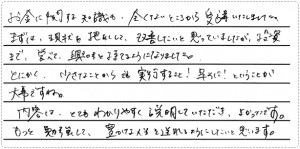 お金に関する知識も、全くないところから受講いたしました。
まずは、現状を把握して、改善したいと思っていましたが、投資
まで、学べて、興味をもてるようになりました。
とにかく、小さなことから even 実行すること！早めに！ということが
大事ですね。
内容は、とてもわかりやすく説明していただき、よかったです。
もっと勉強して、豊かな人生を送れるようにしたいと思います。